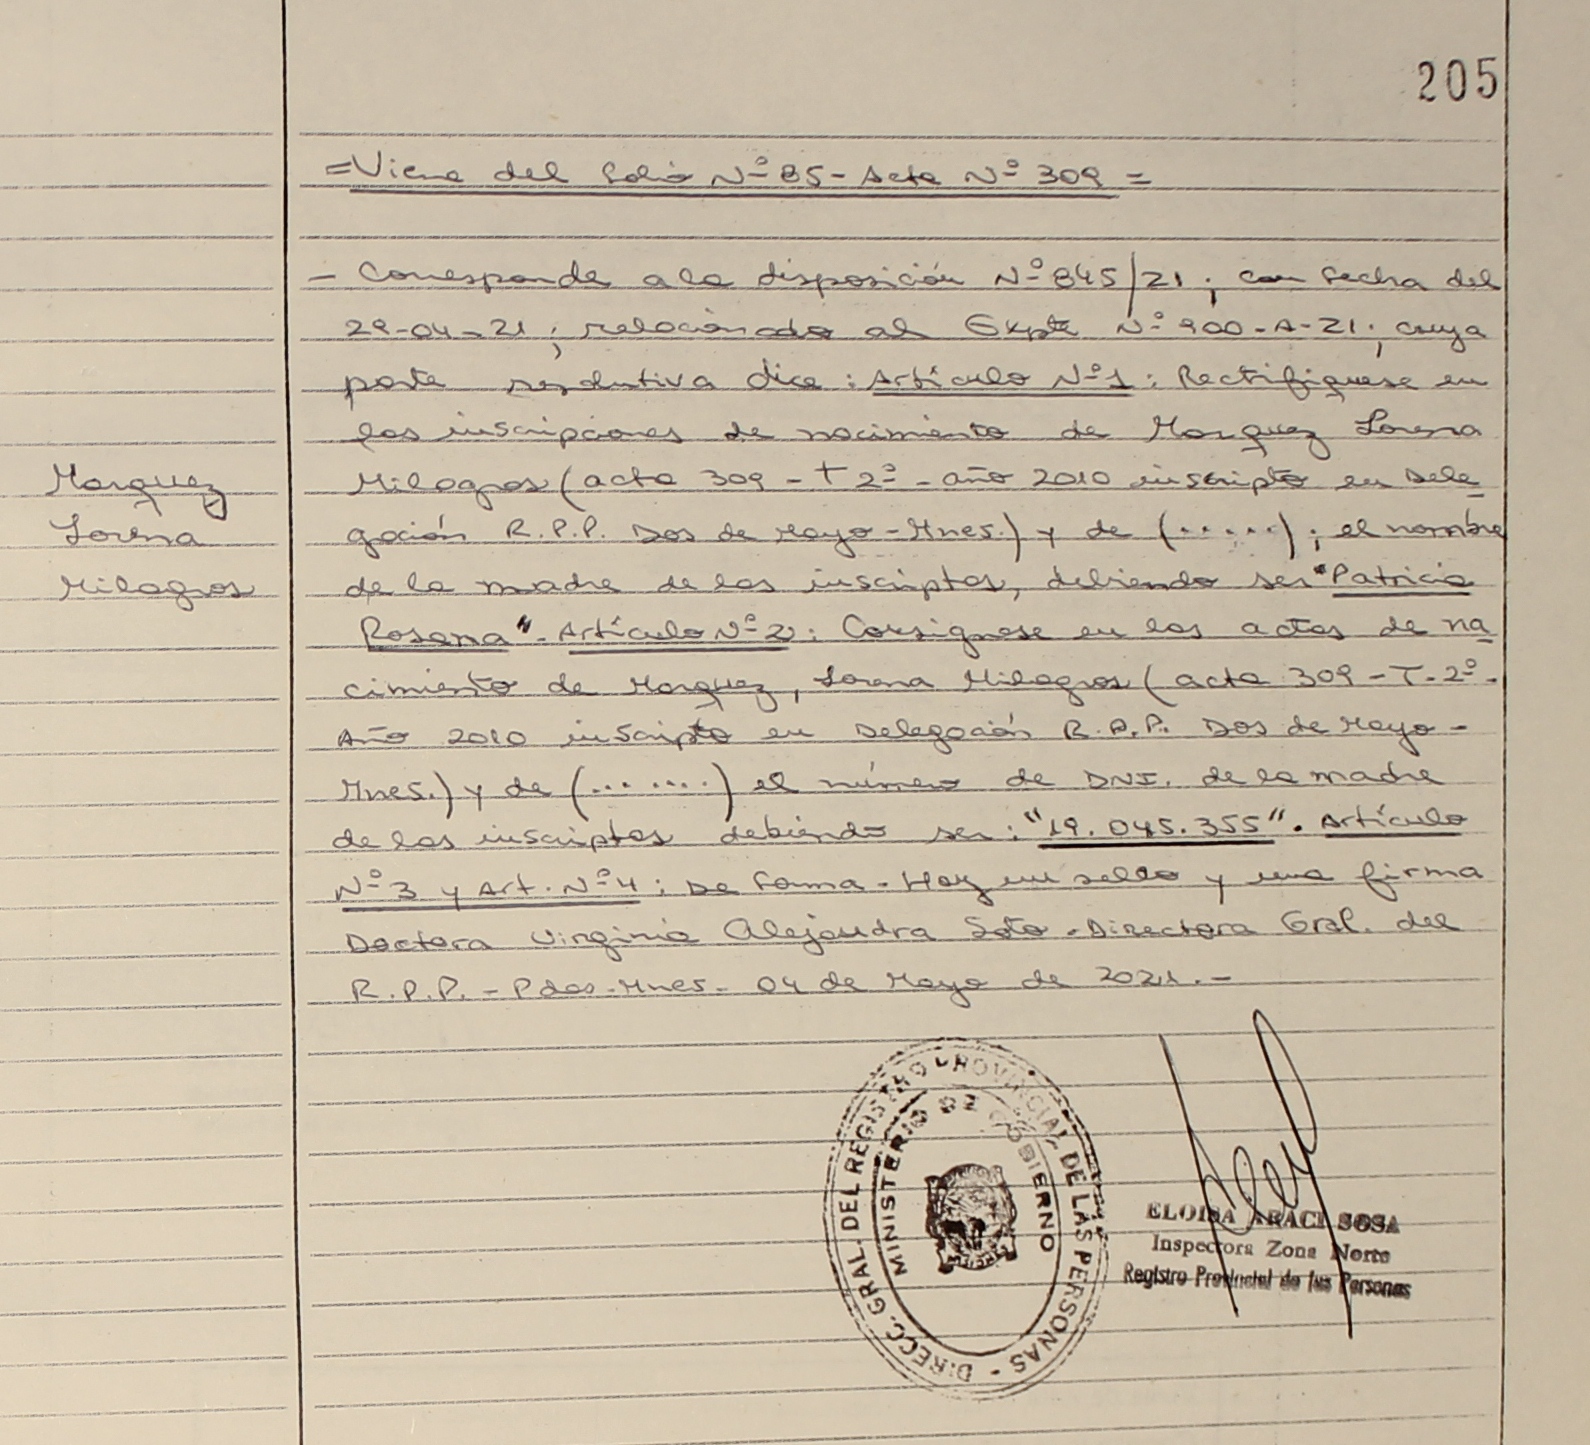 205
=Viene del folio Nº 85- Acta Nº 309=
- Corresponde a la disposición Nº 845/21; con fecha del
29-04-21; relacionado al Expte Nº 900-A-21; cuya
parte resolutiva dice: Artículo Nº1: Rectifíquese en
las inscripciones de nacimiento de Marquez Lorena
Marquez
Lorena
Milagros
Milagros (acta 309 - T 2º - año 2010 inscripto en Dele-
gación R.P.P. Dos de Mayo-Mnes.) y de (.....); el nombre
de la madre de los inscriptos, debiendo ser "Patricia
Rosana"- Artículo Nº 2: Consígnese en las actas de na-
cimiento de Marquez, Lorena Milagros (acta 309 - T-2º-
Año 2010 inscripto en Delegación R.P.P. Dos de Mayo-
Mnes.) y de (.......) el número de DNI. de la madre
de los inscriptos debiendo ser: "19.045.355". Artículo
Nº3 y Art. Nº4: De forma - Hay un sello y una firma
Doctora Virginia Alejandra Soto - Directora Gral. del
R.P.P. - Pdas-Mnes- 04 de Mayo de 2021.-
DIRECC. GRAL. DEL REGISTRO PROVINCIAL DE LAS PERSONAS -
MINISTERIO DE GOBIERNO
ELOISA ARACI SOSA
Inspectora Zona Norte
Registro Provincial de las Personas